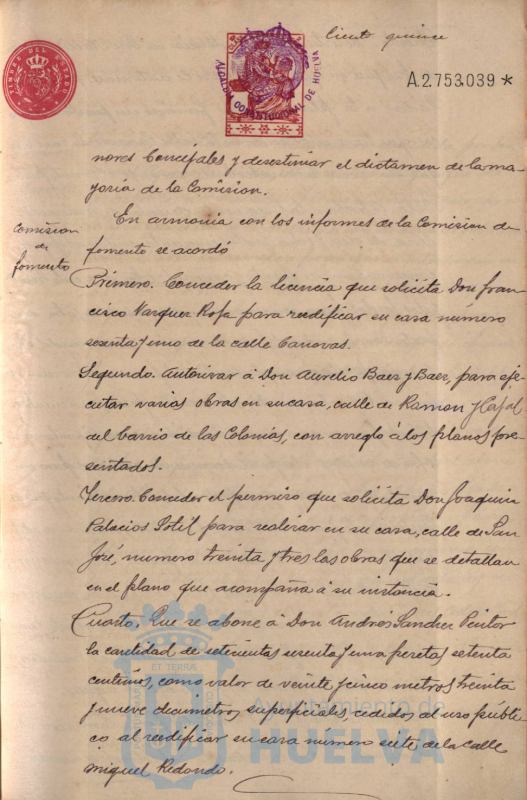 ciento quince
TIMBRE DEL ESTADO
ALCALDIA CONSTITUCIONAL DE HUELVA
A.2.753.039*
nores Concejales y desestimar el dictamen de la ma-
yoria de la Comision.
En armonia con los informes de la Comision de
fomento se acordó
Comision
de
fomento
Primero. Conceder la licencia que solicita Don Fran-
cisco Vazquez Rofa para reedificar su casa número
sesenta y uno de la calle Canovas.
Segundo. Autorizar á Don Aurelio Baez y Baez, para eje-
cutar varias obras en su casa, calle de Ramon y Cajal
del barrio de las Colonias, con arreglo á los planos pre-
sentados.
Tercero. Conceder el permiso que solicita Don Joaquin
Palacios para realizar en su casa, calle de San
José, numero treinta y tres las obras que se detallan
en el plano que acompaña á su instancia.
Cuarto. Que se abone á Don Andrés Sanchez Pintor
la cantidad de setecientas sesenta y una pesetas setenta
centimos, como valor de veinte y cinco metros treinta
y nueve decimetros superficiales, cedidos al uso públi-
co al reedificar su casa número siete de la calle
Miguel Redondo.
ET TERRÆ
Ayuntamiento de
HUELVA